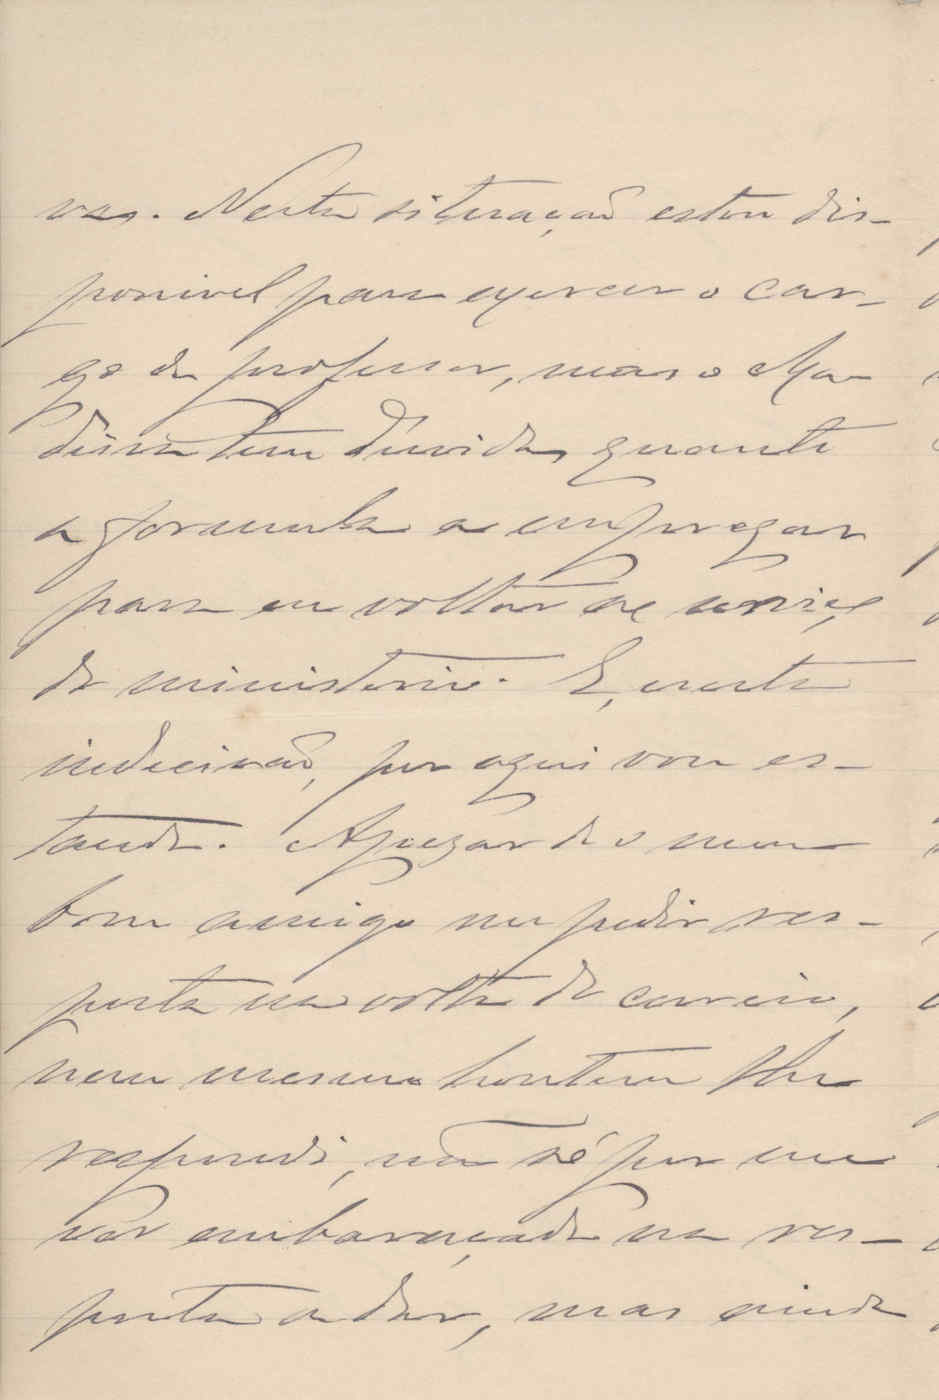 vas. Nesta situação estou dis-
ponivel para exercer o car-
go de professor, mas o Ma-
deira tem duvidas quanto
a formula a empregar
para eu voltar ao serviço
do ministerio. E, nesta
indecisão, por aqui vou es-
tando. Apezar de o meu
bom amigo me pedir res-
posta na volta do correio,
nem mesmo hontem lhe
respondi, não só por me
vêr embaraçado na res-
posta a dar, mas ainda